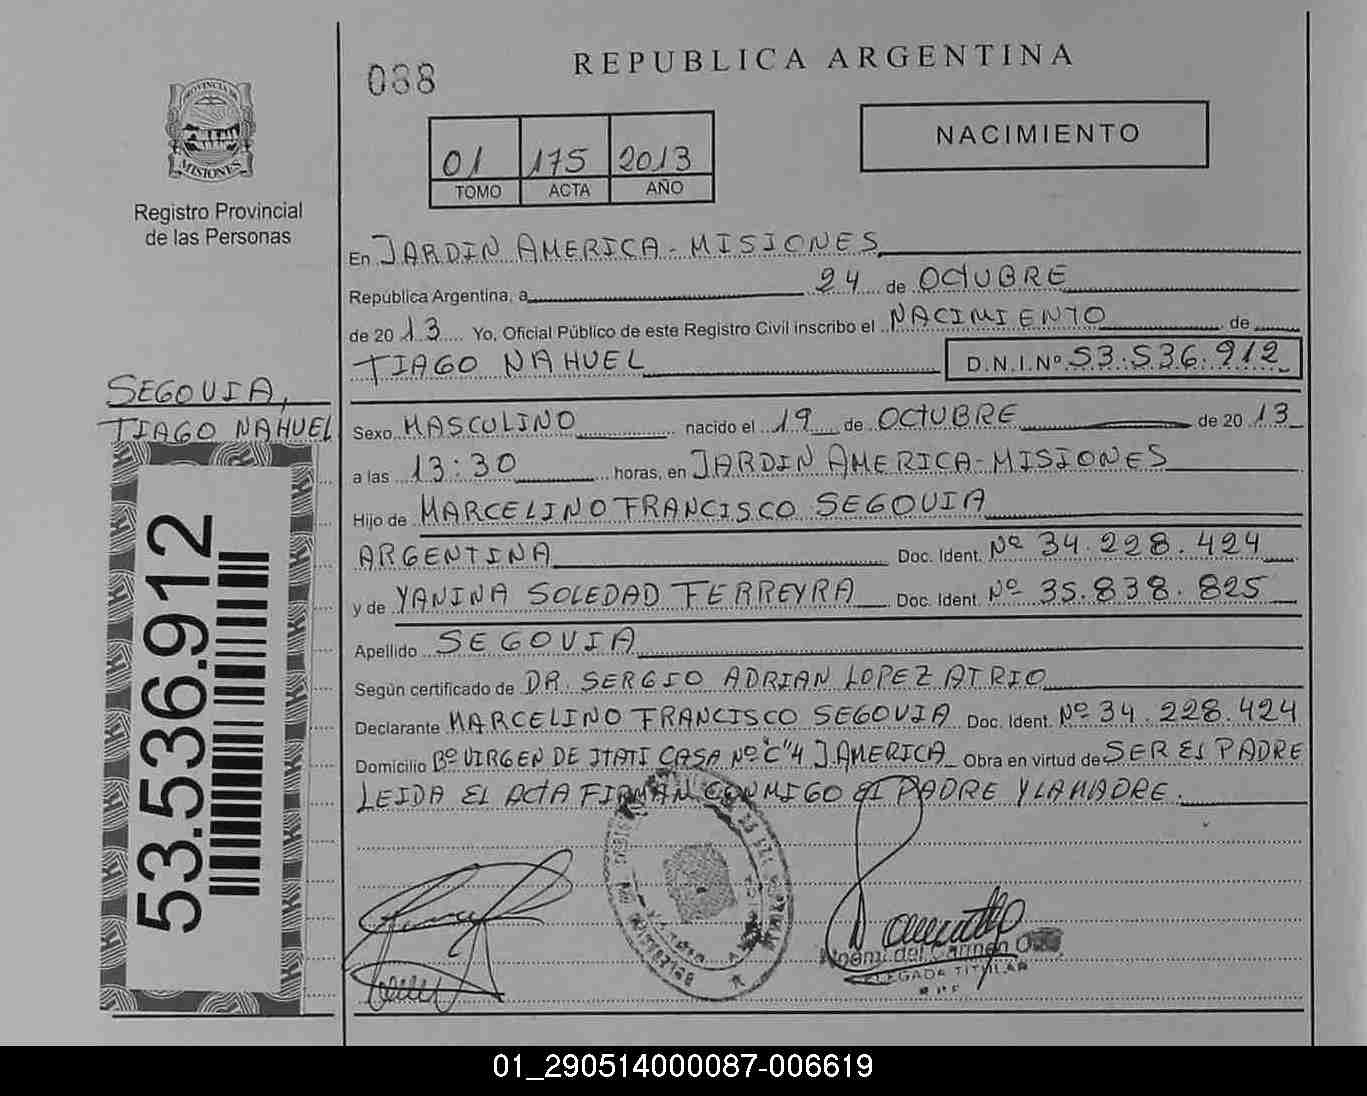 088
REPUBLICA ARGENTINA
PROVINCIA DE
MISIONES
Registro Provincial
de las Personas
01 175 2013
TOMO ACTA AÑO
NACIMIENTO
En JARDIN AMERICA - MISIONES
República Argentina, a 24 de OCTUBRE
de 2013 Yo, Oficial Público de este Registro Civil inscribo el NACIMIENTO de
TIAGO NAHUEL D.N.I.Nº 53.536.912
SEGOVIA,
TIAGO NAHUEL
53.536.912
Sexo MASCULINO nacido el 19 de OCTUBRE de 2013
a las 13:30 horas, en JARDIN AMERICA - MISIONES
Hijo de MARCELINO FRANCISCO SEGOVIA
ARGENTINA Doc. Ident. Nº 34.228.424
y de YANINA SOLEDAD FERREYRA Doc. Ident. Nº 35.838.825
Apellido SEGOVIA
Según certificado de DR. SERGIO ADRIAN LOPEZ ATRIO
Declarante MARCELINO FRANCISCO SEGOVIA Doc. Ident. Nº 34.228.424
Domicilio Bº VIRGEN DE ITATI CASA Nº "C" 4 J. AMERICA Obra en virtud de SER EL PADRE
LEIDA EL ACTA FIRMAN CONMIGO EL PADRE Y LA MADRE.
Noemi del Carmen
DELEGADA TITULAR
01_290514000087-006619